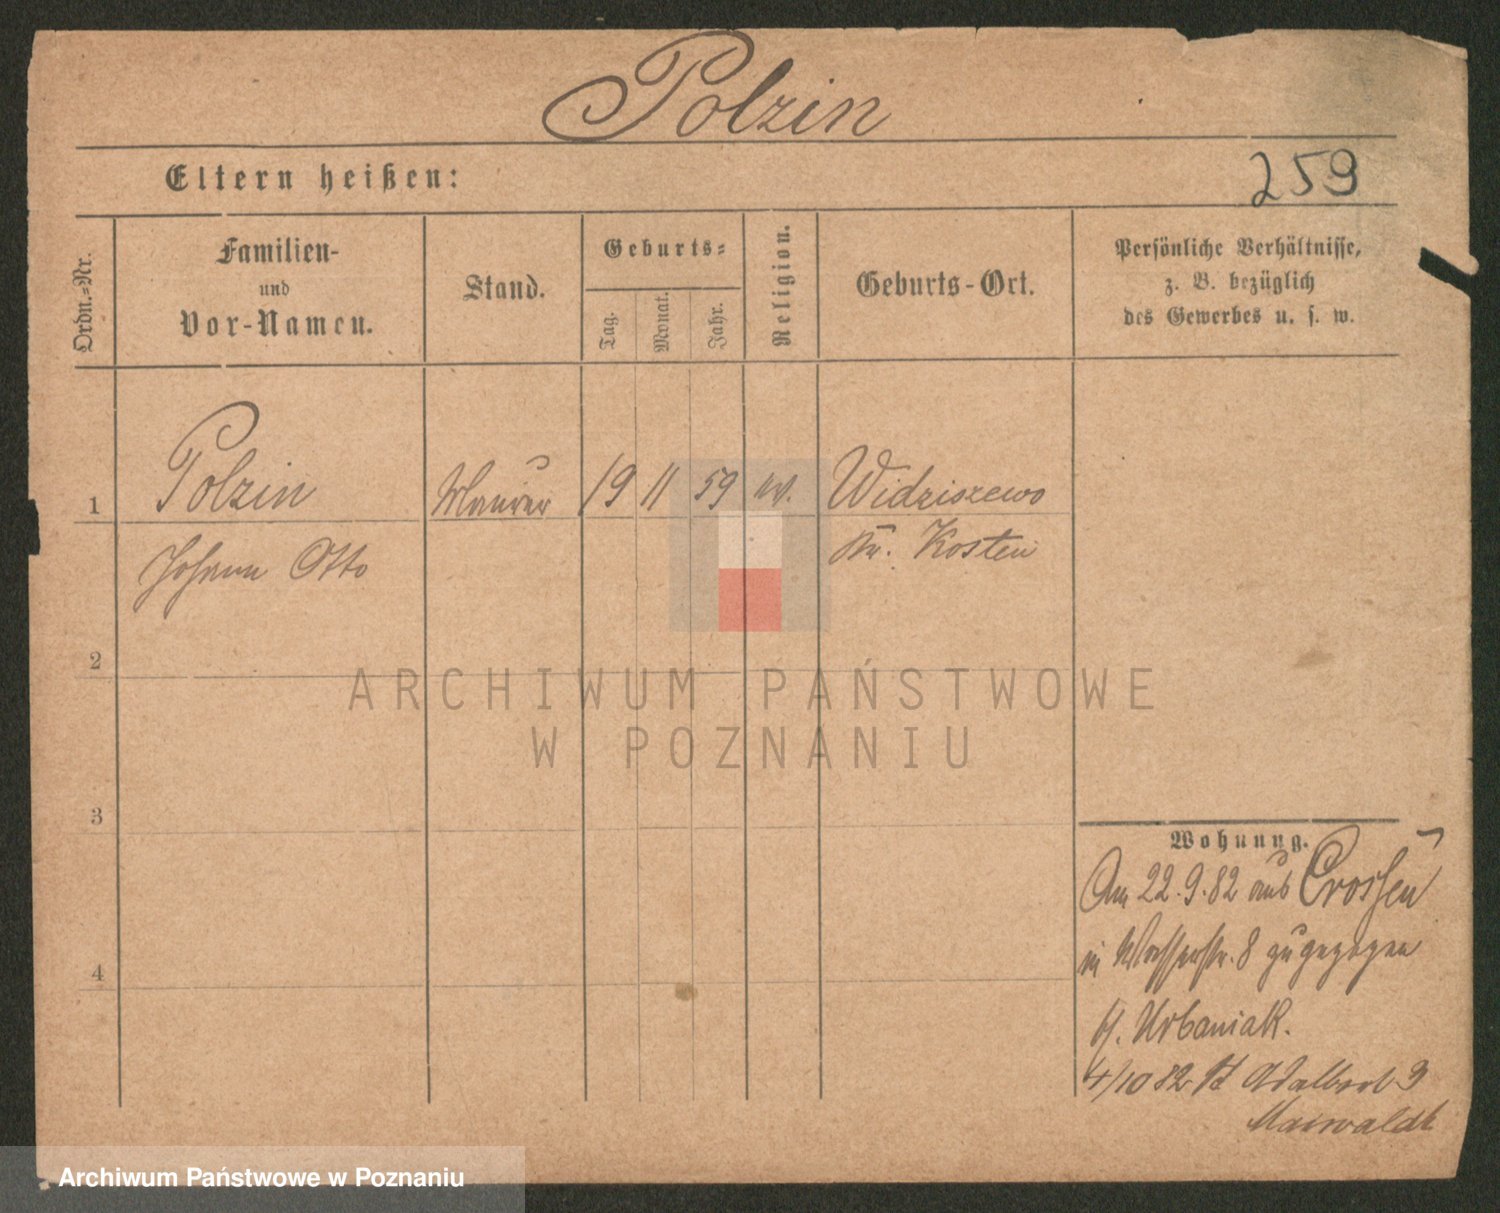 Polzin
Eltern heißen:
259
Ordn.-Nr.
Familien-
und
Vor-Namen.
Stand.
Geburts-
Tag.
Monat.
Jahr.
Religion.
Geburts-Ort.
Persönliche Verhältnisse,
z. B. bezüglich
des Gewerbes u. s. w.
1 Polzin Maurer 19 11 59 ev. Widziszewo
Johann Otto Kr. Kosten
2
ARCHIWUM PAŃSTWOWE
W POZNANIU
3
Wohnung.
Am 22.9.82 aus Crossen
in Wasserstr. 8 zugezogen
b/. Urbaniak.
4
4/10 82 St Adalbert 3
Maiwaldt
Archiwum Państwowe w Poznaniu